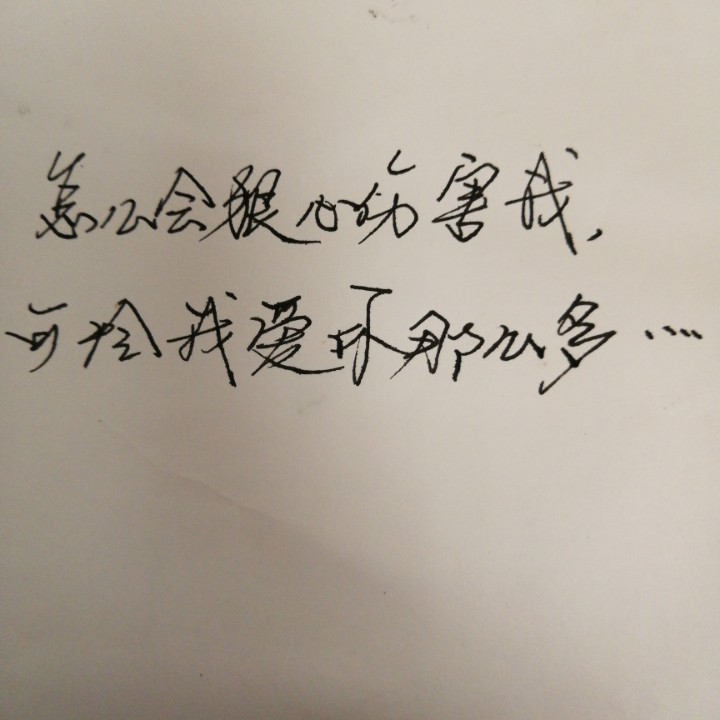 怎么会狠心伤害我,
可怜我爱你那么多....